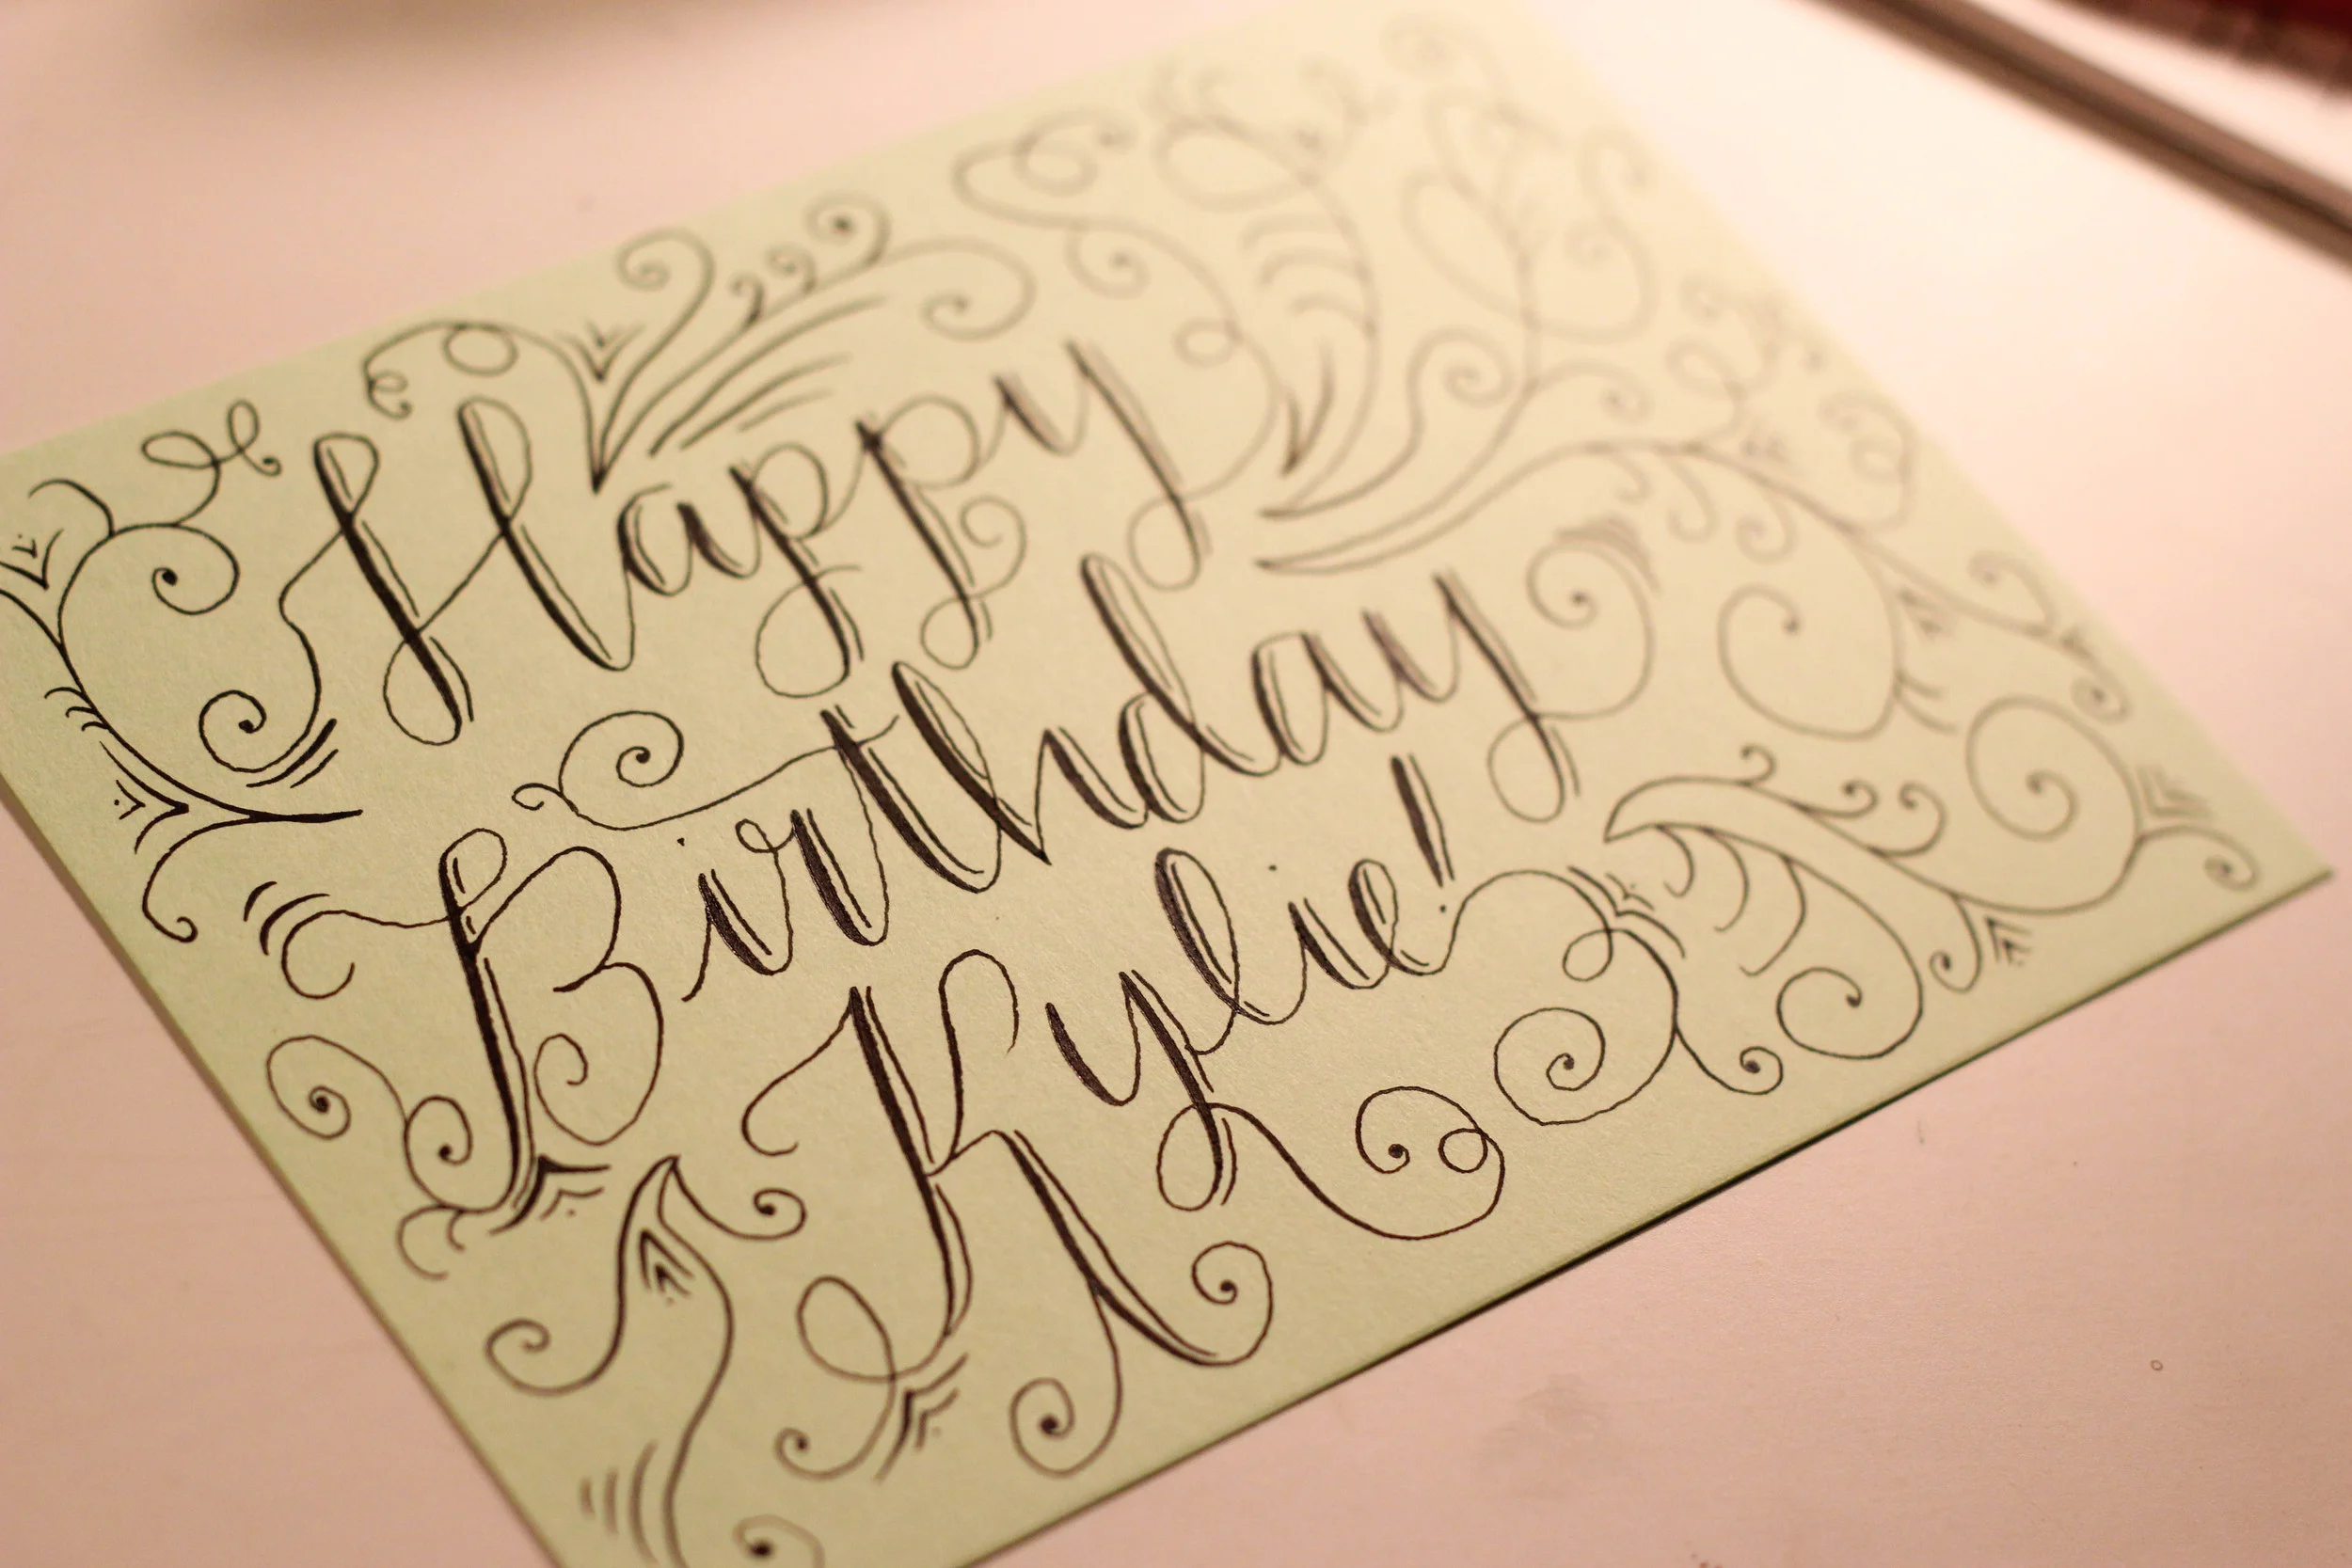 Happy
Birthday
Kylie!